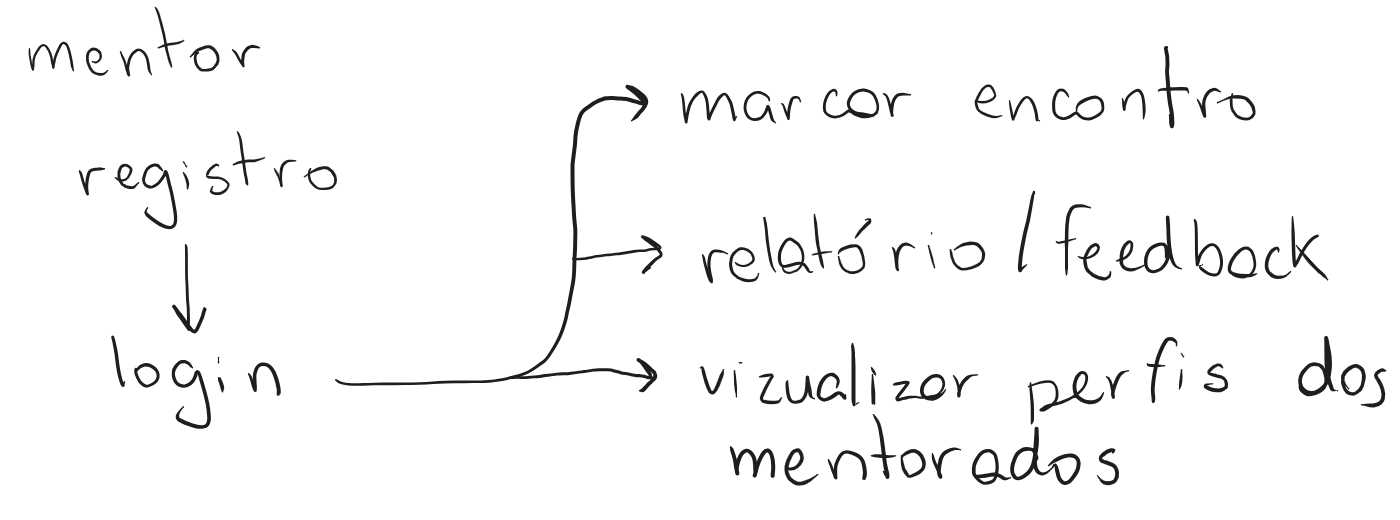 mentor
registro
login
marcar encontro
relatório / feedback
vizualizar perfis dos
mentorados